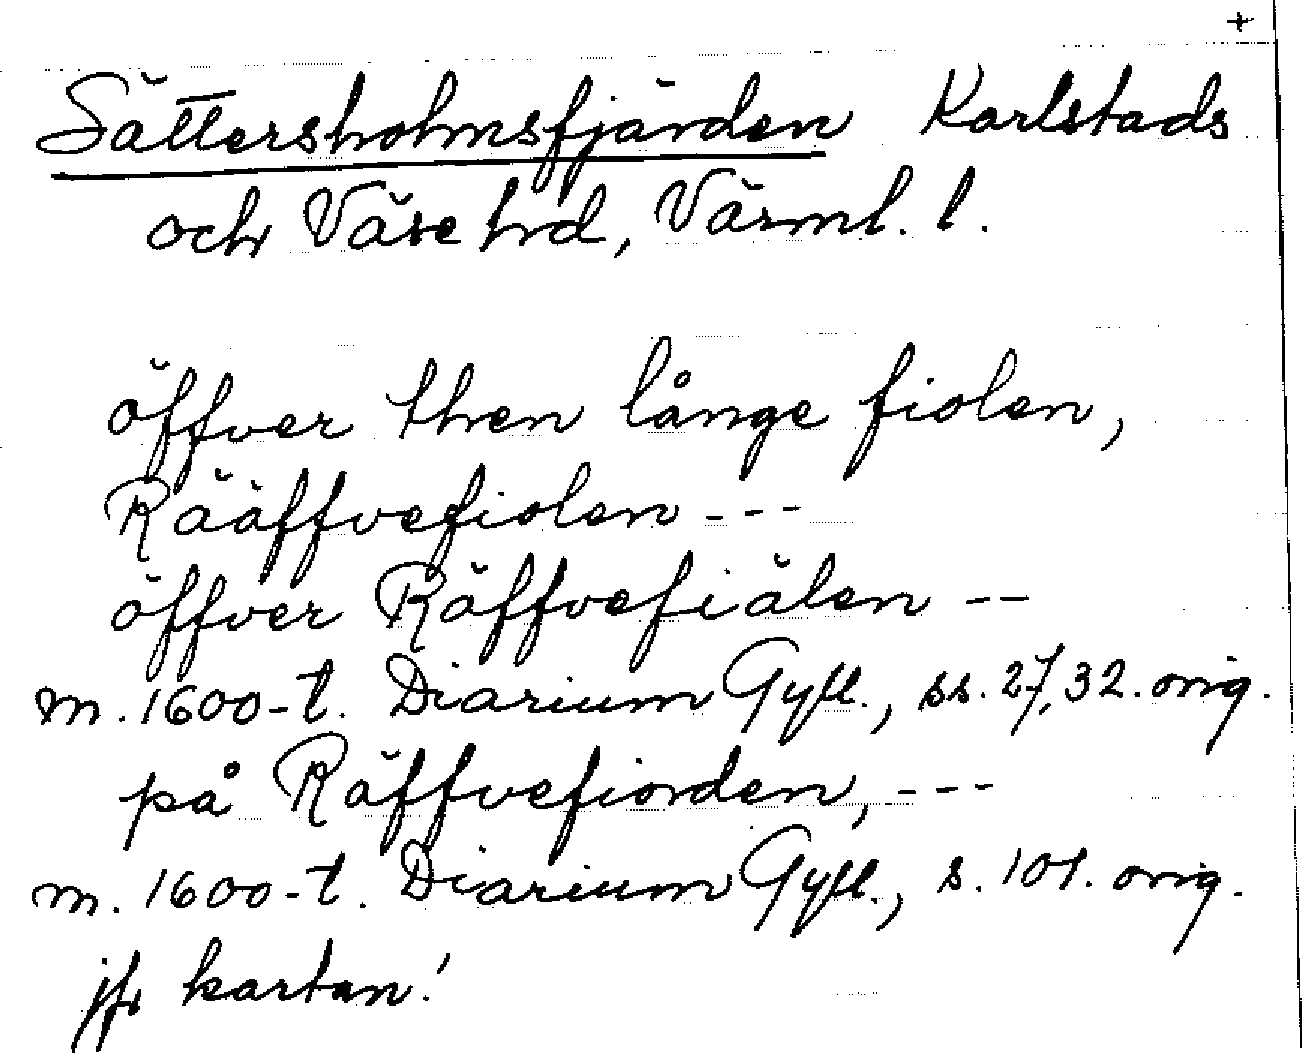 +
Sättersholmsfjärden Karlstads
och Väse hrd, Värml. l.
öffver then långe fiolen,
Rääffvefiolen ---
öffver Räffvefiälen --
m. 1600-t. Diarium Gyll., ss. 27, 32. orig.
på Räffvefiorden, ---
m. 1600-t. Diarium Gyll., s. 101. orig.
jfr kartan!